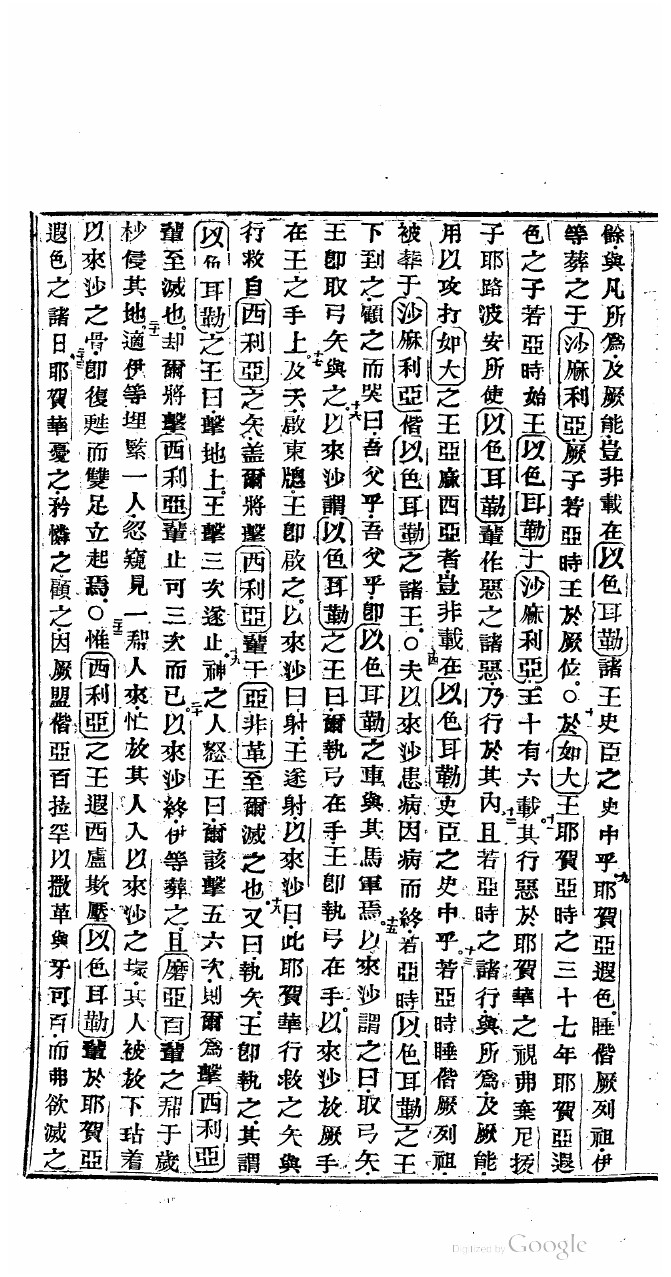 餘與凡所爲及厥能豈非載在以色耳勒諸王史臣之史中乎九耶賀亞遐色睡偕厥列祖伊
等葬之于沙麻利亞厥子若亞時王於厥位○十於如大王耶賀亞時之三十七年耶賀亞遐
色之子若亞時始王以色耳勒于沙麻利亞王十有六載十一其行惡於耶賀華之視弗棄尼拔
子耶路波安所使以色耳勒輩作惡之諸惡乃行於其內十二且若亞時之諸行與所爲及厥能
用以攻打如大之王亞麻西亞者豈非載在以色耳勒史臣之史中乎十三若亞時睡偕厥列祖
被葬于沙麻利亞偕以色耳勒之諸王○十四夫以來沙患病因病而終若亞時以色耳勒之王
下到之顧之而哭曰吾父乎吾父乎卽以色耳勒之車與其馬軍焉十五以來沙謂之曰取弓矢
王卽取弓矢與之十六以來沙謂以色耳勒之王曰爾執弓在手王卽執弓在手以來沙放厥手
在王之手上十七及夭啟東牕王卽啟之以來沙曰射王遂射以來沙曰此耶賀華行救之矢與
行救自西利亞之矢蓋爾將擊西利亞輩于亞非革至爾滅之也十八又曰執矢王卽執之其謂
以色耳勒之王曰擊地上王擊三次遂止十九神之人怒王曰爾該擊五六次則爾爲擊西利亞
輩至滅也却爾將擊西利亞輩止可三次而已二十以來沙終伊等葬之且磨亞百輩之幇于歲
杪侵其地二十一適伊等埋緊一人忽窺見一幇人來忙放其人入以來沙之墳其人被放下玷着
以來沙之骨卽復甦而雙足立起焉○二十二惟西利亞之王遐西盧欺壓以色耳勒輩於耶賀亞
遐色之諸日二十三耶賀華憂之矜憐之顧之因厥盟偕亞百拉罕以撒革與牙可百而弗欲滅之
Digitized by Google